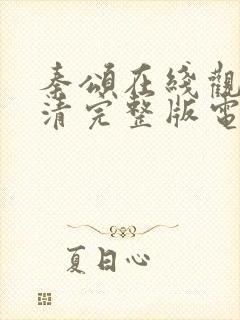 秦頌在綫觀
清完整版電
夏日心